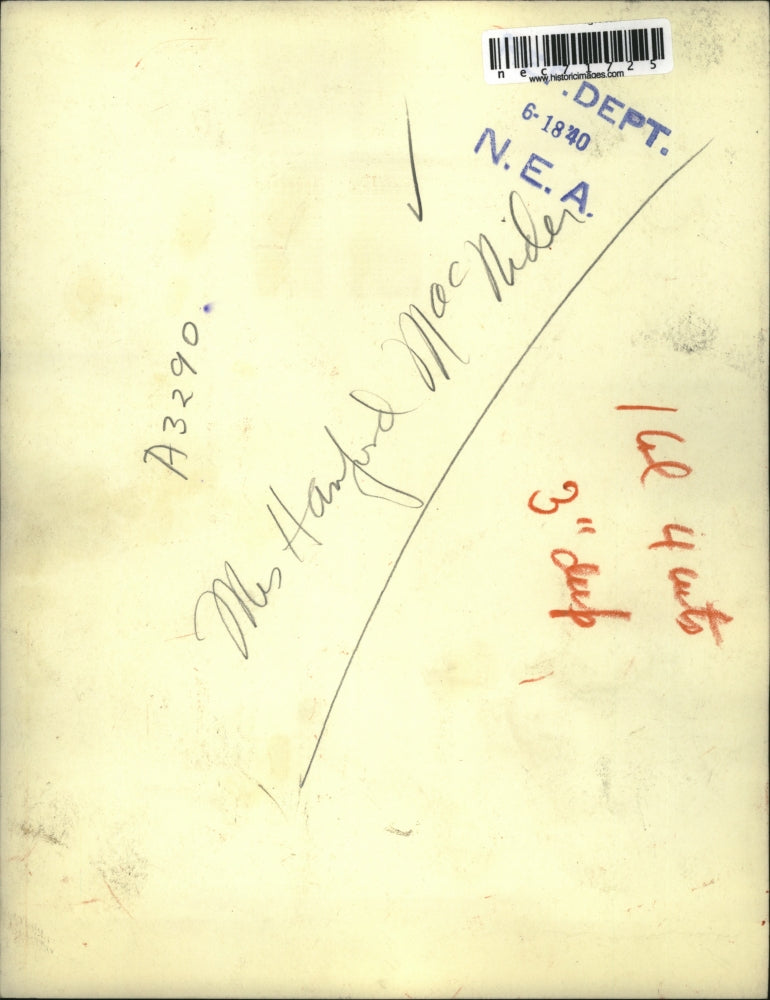 nec71725
www.historicimages.com
. DEPT.
6-18'40
N. E. A.
Mrs Hanford MacNider
A3290.
1 col 4 cuts
3" deep